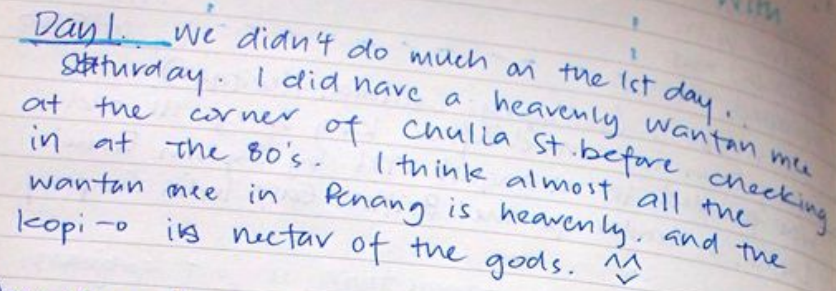 Day 1. We didn't do much on the 1st day.
Saturday. I did have a heavenly wantan mee
at the corner of Chulia St. before checking
in at the 80's. I think almost all the
wantan mee in Penang is heavenly. and the
kopi-o is nectar of the gods. ^^